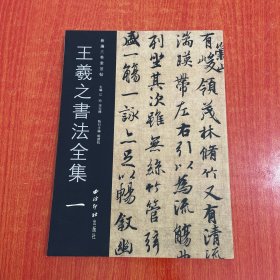 崇山
有峻領茂林脩竹又有清流
湍暎帶左右引以為流觴
列坐其次雖無絲竹管弦
盛一觴一詠亦足以暢敘幽
王羲之書法全集
一
西泠印社出版社